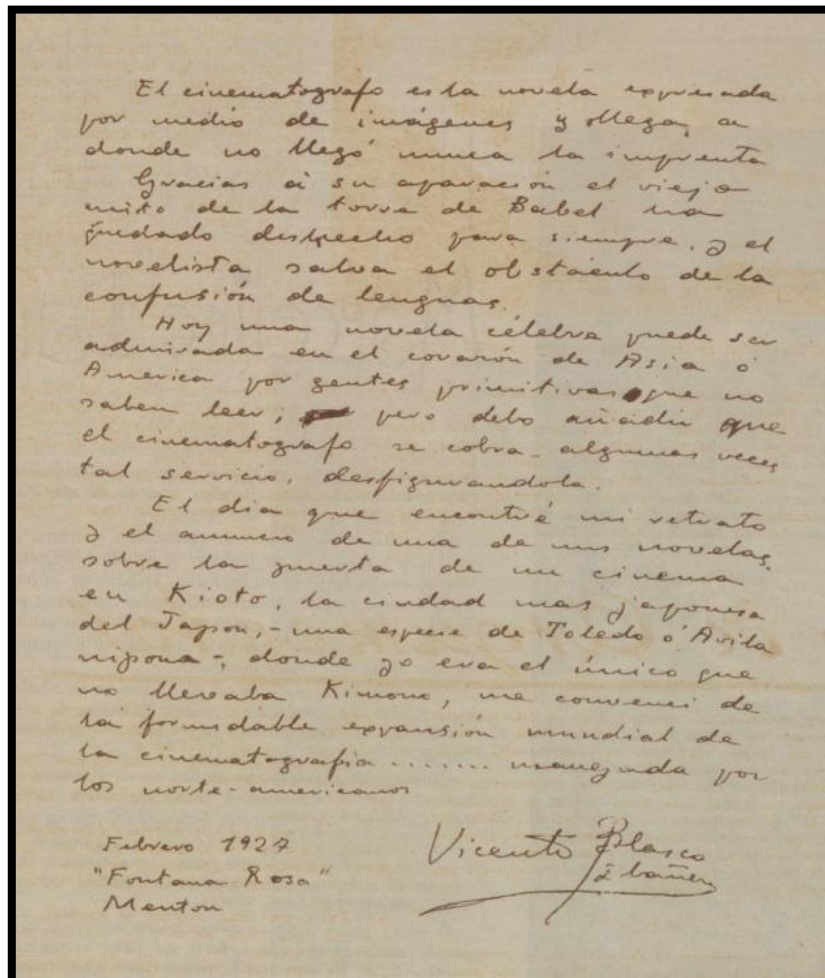 El cinematografo es la novela expresada
por medio de imágenes y llega, a
donde no llegó nunca la imprenta
Gracias á su aparación el viejo
mito de la torre de Babel ha
quedado deshecho para siempre, y el
novelista salva el obstáculo de la
confusión de lenguas.
Hoy una novela célebre puede ser
admirada en el corazón de Asia ó
America por gentes primitivas que no
saben leer; pero debo añadir que
el cinematografo se cobra algunas veces
tal servicio, desfigurandola.
El dia que encontré mi retrato
y el anuncio de una de mis novelas,
sobre la puerta de un cinema
en Kioto, la ciudad mas japonesa
del Japon, - una especie de Toledo ó Avila
nipona -, donde yo era el único que
no llevaba Kimono, me convenci de
la formidable expansión mundial de
la cinematografia ....... manejada por
los norte-americanos
Febrero 1927
"Fontana Rosa"
Menton
Vicente Blasco
Ibañez